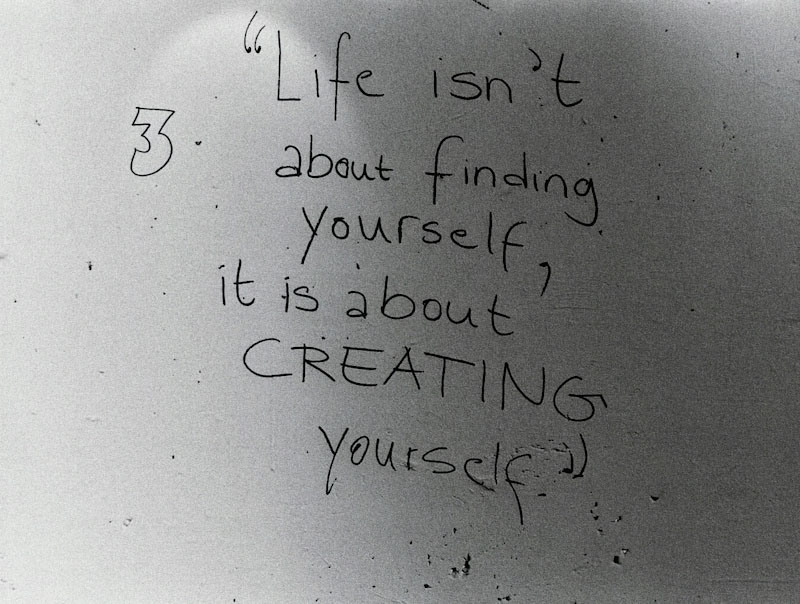 "Life isn't
33.
about finding
yourself,
it is about
CREATING
yourself."